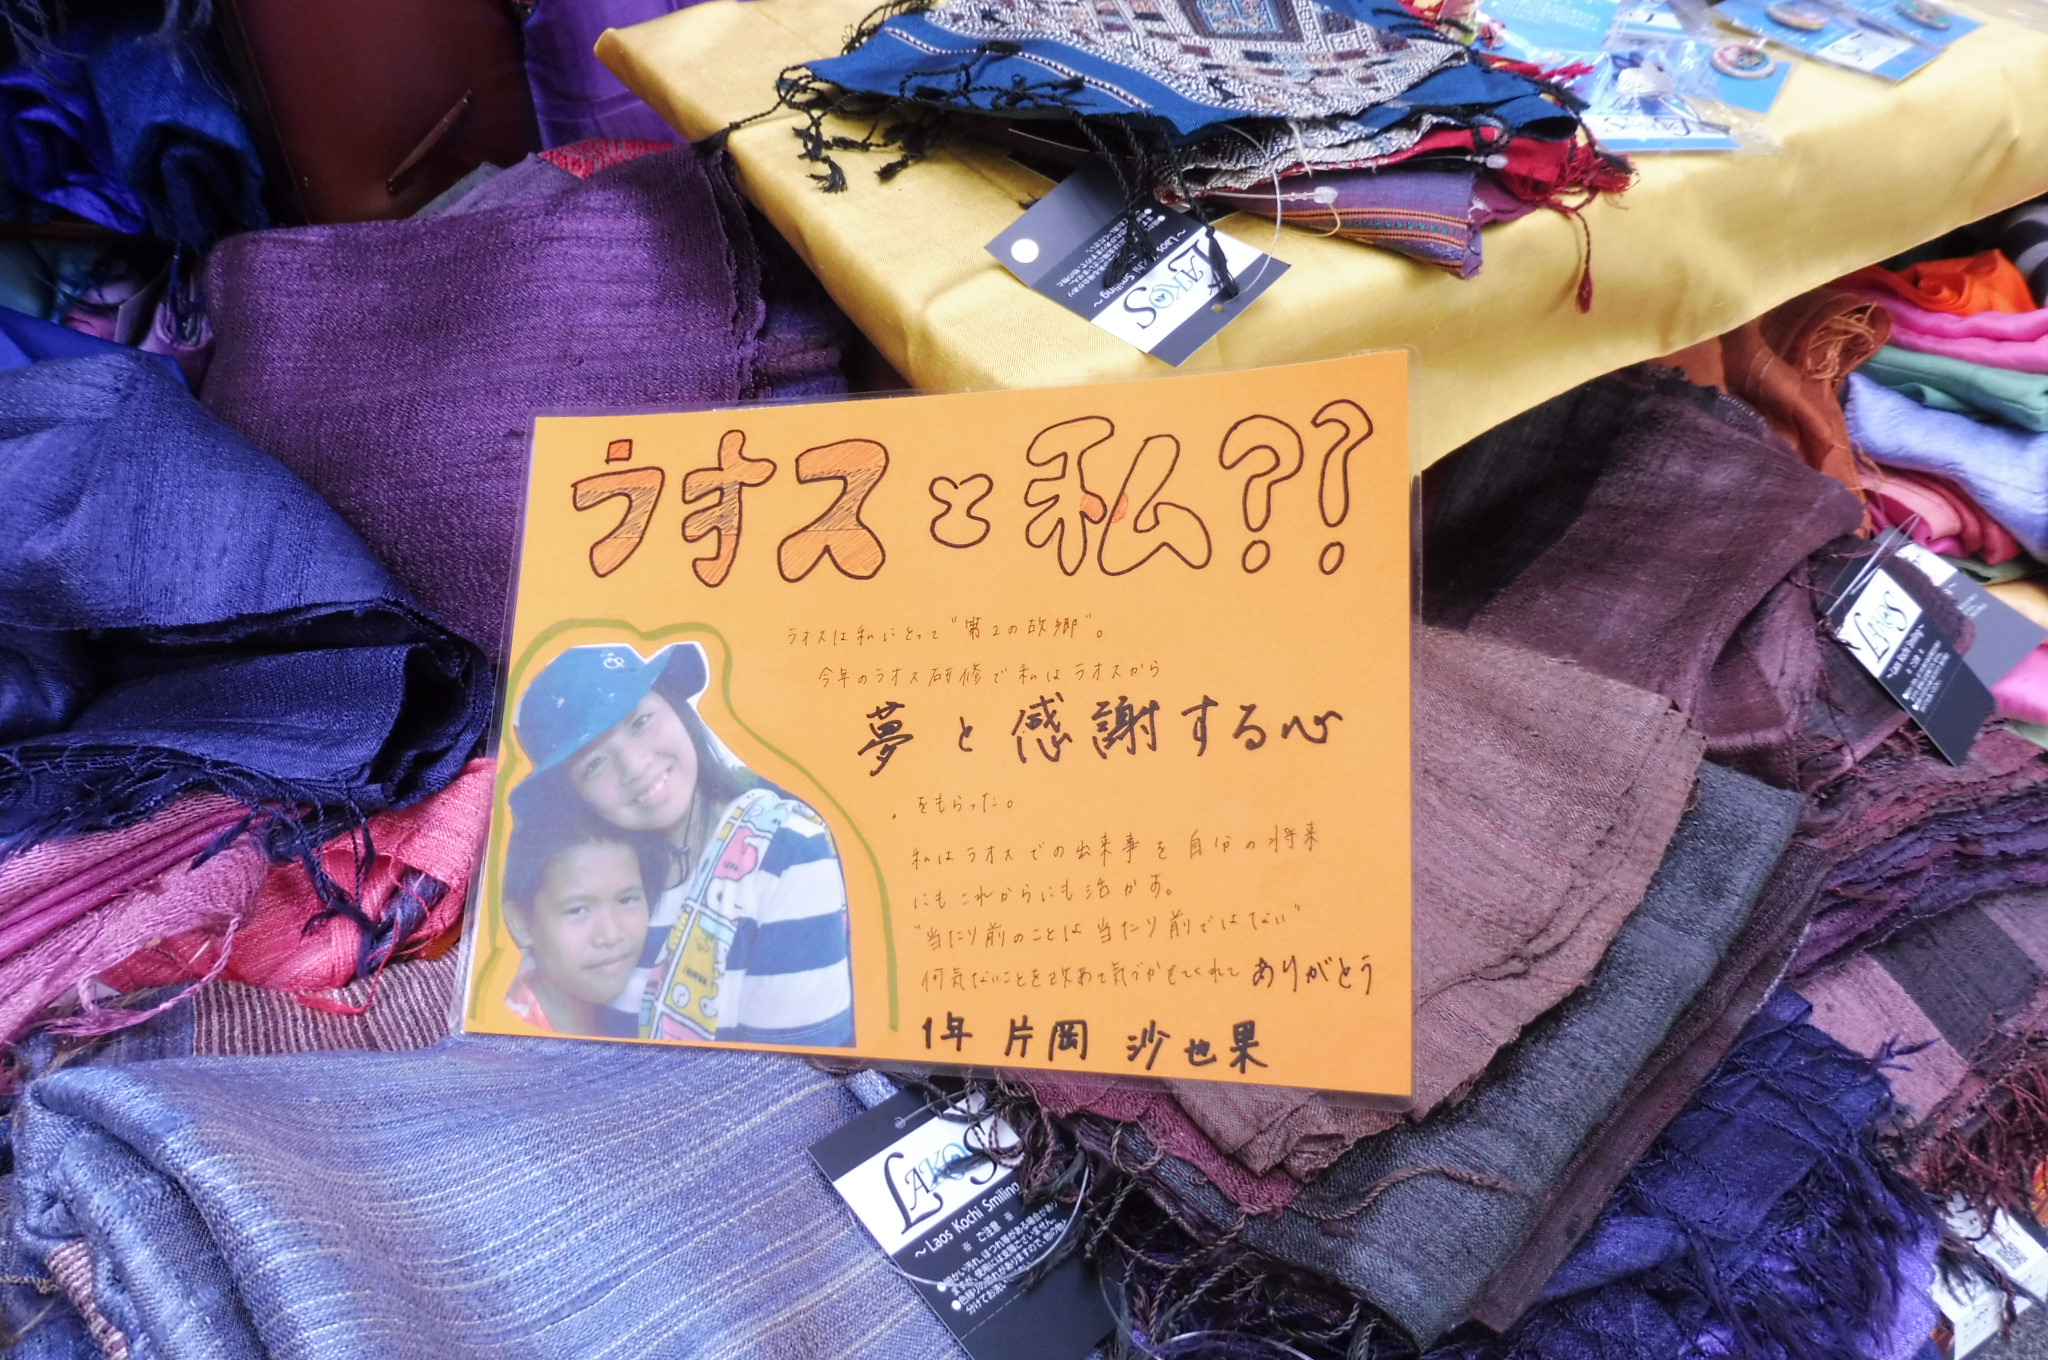 LAKOS
～Laos Kochi Smiling～
ラオスと私??
ラオスは私にとって"第2の故郷"。
今年のラオス研修で私はラオスから
夢と感謝する心
をもらった。
私はラオスでの出来事を自分の将来
にもこれからにも活かす。
"当たり前のことは当たり前ではない"
何気ないことを改めて気づかせてくれてありがとう
1年 片岡 沙也果
LAKOS
～Laos Kochi Smiling～
LAKOS
～Laos Kochi Smiling
※ ご注意 ※